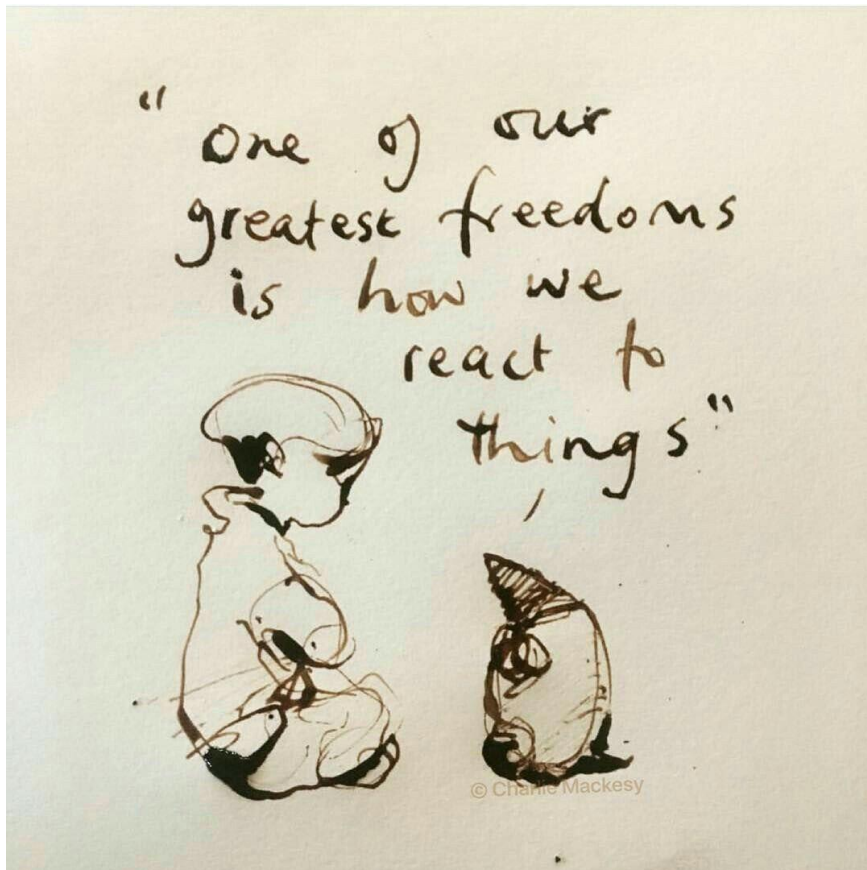 "one of our
greatest freedoms
is how we
react to
things"
© Charlie Mackesy